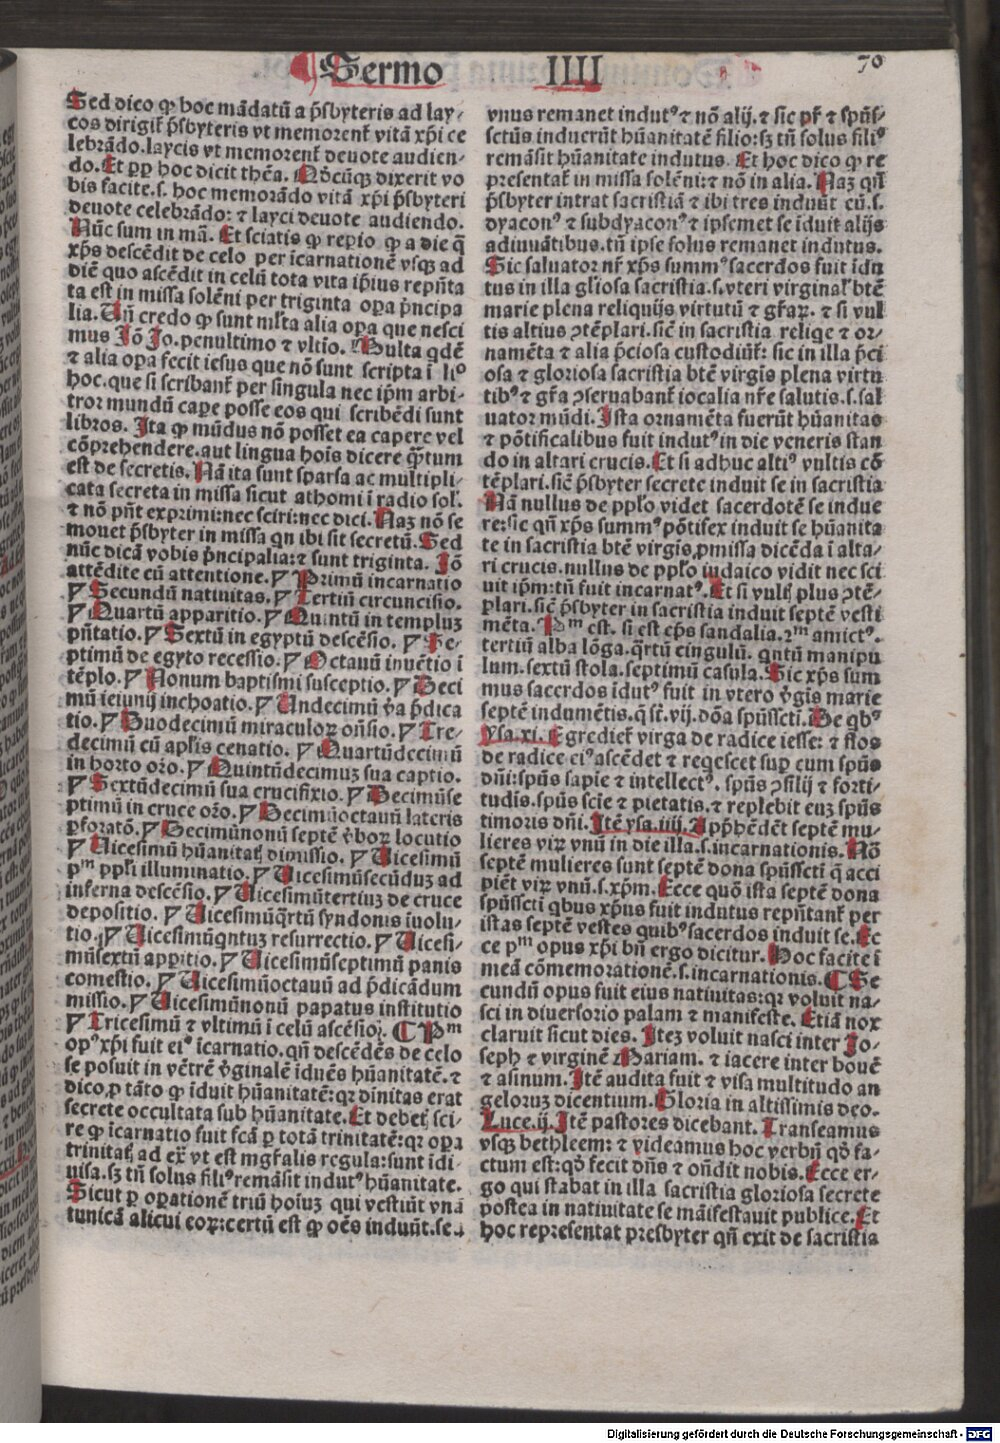 Sermo IIII
70
Sed dico ꝙ hoc mādatū a p̄sbyteris ad lay-
cos dirigit̄ p̄sbyteris vt memorent̄ vitā xp̄i ce
lebrādo. laycis vt memorent̄ deuote audien-
do. Et ꝓp̄ hoc dicit thēa. Q̄cūqꝫ dixerit vo
bis facite. s. hoc memorādo vitā xp̄i p̄sbyteri
deuote celebrādo: ⁊ layci deuote audiendo.
Nūc sum in mā. Et sciatis ꝙ reꝑio ꝙ a die q̄
xp̄s descēdit de celo per īcarnationē vsqꝫ ad
diē quo ascēdit in celū tota vita ip̄ius rep̄n̄ta
ta est in missa solēni per triginta oꝑa p̄ncipa
lia. Uñ credo ꝙ sunt ml̄ta alia oꝑa que nesci
mus Jō Jo. penultimo ⁊ vltīo. Multa qdē
⁊ alia oꝑa fecit iesus que nō sunt scripta ī li⁰
hoc. que si scribant̄ per singula nec ip̄m arbi-
tror mundū caꝑe posse eos qui scribēdi sunt
libros. Ita ꝙ mūdus nō posset ea capere vel
cōprehendere. aut lingua hoīs dicere q̄ꝫtum
est de secretis. Nā ita sunt sparsa ac multipli-
cata secreta in missa sicut athomi ī radio sol̄.
⁊ nō pn̄t exprimi: nec sciri: nec dici. Naꝫ nō se
mouet p̄sbyter in missa qn ibi sit secretū. Sed
nūc dicā vobis p̄ncipalia: ⁊ sunt triginta. Jō
attēdite cū attentione. ¶ Primū incarnatio
¶ Secundū natiuitas. ¶ Tertiū circuncisio.
¶ Quartū apparitio. ¶ Quintū in templuꝫ
pn̄tatio. ¶ Sextū in egyptū descēsio. ¶ Se-
ptimū de egyto recessio. ¶ Octauū inuētio ī
tēplo. ¶ Nonum baptismi susceptio. ¶ Deci
mū ieiunij inchoatio. ¶ Undecimū v̄a p̄dica
tio. ¶ Duodecimū miraculoꝝ on̄sio. ¶ Tre-
decimū cū apl̄is cenatio. ¶ Quartūdecimū
in horto or̄o. ¶ Quintūdecimuꝫ sua captio.
¶ Sextūdecimū sua crucifixio. ¶ Decimūse
ptimū in cruce or̄o. ¶ Decimūoctauū lateris
ꝑforatō. ¶ Decimūnonū septē v̄boꝝ locutio
¶ Uicesimū hūanitatꝭ dimissio. ¶ Uicesimū
pᵐ ppl̄i illuminatio. ¶ Uicesimūsecūduꝫ ad
inferna descēsio. ¶ Uicesimūtertiuꝫ de cruce
depositio. ¶ Uicesimūq̄rtū syndonis īuolu-
tio. ¶ Uicesimūqntuꝫ resurrectio. ¶ Uicesi-
mūsextū apꝑitio. ¶ Uicesimūseptimū panis
comestio. ¶ Uicesimūoctauū ad p̄dicādum
missio. ¶ Uicesimūnonū papatus institutio
¶ Tricesimū ⁊ vltimū ī celū ascēsio. ¶ Pᵐ
opꝰ xp̄i fuit eiꝰ īcarnatio. qn̄ descēdēs de celo
se posuit in vētrē v̄ginalē īduēs hūanitatē. ⁊
dico, ꝓ tāto ꝙ īduit hūanitatē: qꝛ dīnitas erat
secrete occultata sub hūanitate. Et debetꝭ sci-
re ꝙ īcarnatio fuit fcā ꝑ totā trinitatē: qꝛ oꝑa
trinitatꝭ ad ex̄ vt est mgr̄alis regula: sunt īdi-
uisa. sꝫ tn̄ solus filiꝰ remāsit indutꝰ hūanitate.
Sicut ꝑ oꝑationē triū hoīuꝫ qui vestiūt vnā
tunicā alicui eoꝝ: certū est ꝙ oēs induūt. sed
vnus remanet indutꝰ ⁊ nō alij. ⁊ sic pr̄ ⁊ spūs̄-
sctūs induerūt hūanitatē filio: sꝫ tn̄ solus filiꝰ
remāsit hūanitate indutus. Et hoc dico ꝙ re
presentat̄ in missa solēni: ⁊ nō in alia. Naꝫ qn̄
p̄sbyter intrat sacristiā ⁊ ibi tres induūt eū. s.
dyaconꝰ ⁊ subdyaconꝰ ⁊ ipsemet se īduit alijs
adiuuātibus. tn̄ ipse solus remanet indutus.
Sic saluator nr̄ xp̄s summꝰ sacerdos fuit īdu
tus in illa gl̄iosa sacristia. s. vteri virginal̄ btē
marie plena reliquijs virtutū ⁊ gr̄aꝝ. ⁊ si vul
tis altius ꝯtēplari. sicē in sacristia reliqe ⁊ or-
namēta ⁊ alia p̄ciosa custodiūt̄: sic in illa p̄ci
osa ⁊ gloriosa sacristia btē virgīs plena virtu
tibꝰ ⁊ gr̄a ꝯseruabant̄ iocalia nr̄e salutis. s. sal
uator mūdi. Ista ornamēta fuerūt hūanitas
⁊ pōtificalibus fuit indutꝰ in die veneris stan
do in altari crucis. Et si adhuc altiꝰ vultis cō
tēplari. sicē p̄sbyter secrete induit se in sacristia
Nā nullus de ppl̄o videt sacerdotē se indue
re: sic qn̄ xp̄s summꝰ pōtifex induit se hūanita
te in sacristia btē virgīs, ꝓ missa dicēda ī alta-
ri crucis. nullus de ppl̄o iudaico vidit nec sci
uit ip̄m: tn̄ fuit incarnatꝰ. Et si vultꝭ plus ꝯtē-
plari. sicē p̄sbyter in sacristia induit septē vesti
mēta. Pᵐ est. si est ep̄s sandalia. 2ᵐ amictꝰ.
tertiū alba lōga. q̄rtū cingulū. qntū manipu
lum. sextū stola. septimū casula. Sic xp̄s sum
mus sacerdos īdutꝰ fuit in vtero v̄gis marie
septē indumētis. q̄ st̄. vij. dōa spūss̄cti. De qbꝰ
Ysa. xi. Egrediet̄ virga de radice iesse: ⁊ flos
de radice eiꝰ ascēdet ⁊ reqescet suꝑ eum spūs
dn̄i: spūs sapie ⁊ intellectꝰ. spūs ꝯsilij ⁊ forti-
tudis. spūs scie ⁊ pietatis. ⁊ replebit euꝫ spūs
timoris dn̄i. Itē ysa. iiij. Apphēdēt septē mu-
lieres viꝝ vnū in die illa. s. incarnationis. Nō
septē mulieres sunt septē dona spūss̄cti q̄ acci
piēt viꝝ vnū. s. xp̄m. Ecce quō ista septē dona
spūss̄cti qbus xp̄us fuit indutus rep̄n̄tant̄ per
istas septē vestes quibꝰ sacerdos induit se. Ec
ce pᵐ opus xp̄i bn̄ ergo dicitur. Hoc facite ī
meā cōmemorationē. s. incarnationis. ¶ Se
cundū opus fuit eius natiuitas: qꝛ voluit na-
sci in diuersorio palam ⁊ manifeste. Etiā nox
claruit sicut dies. Iteꝫ voluit nasci inter Jo-
seph ⁊ virginē Mariam. ⁊ iacere inter bouē
⁊ asinum. Itē audita fuit ⁊ visa multitudo an
geloruꝫ dicentium. Gloria in altissimis deo.
Luce. ij. Itē pastores dicebant. Transeamus
vsqꝫ bethleem: ⁊ videamus hoc verbū qđ fa-
ctum est: qđ fecit dn̄s ⁊ on̄dit nobis. Ecce er-
go qui stabat in illa sacristia gloriosa secrete
postea in natiuitate se māifestauit publice. Et
hoc representat presbyter qn̄ exit de sacristia
Digitalisierung gefördert durch die Deutsche Forschungsgemeinschaft - DFG